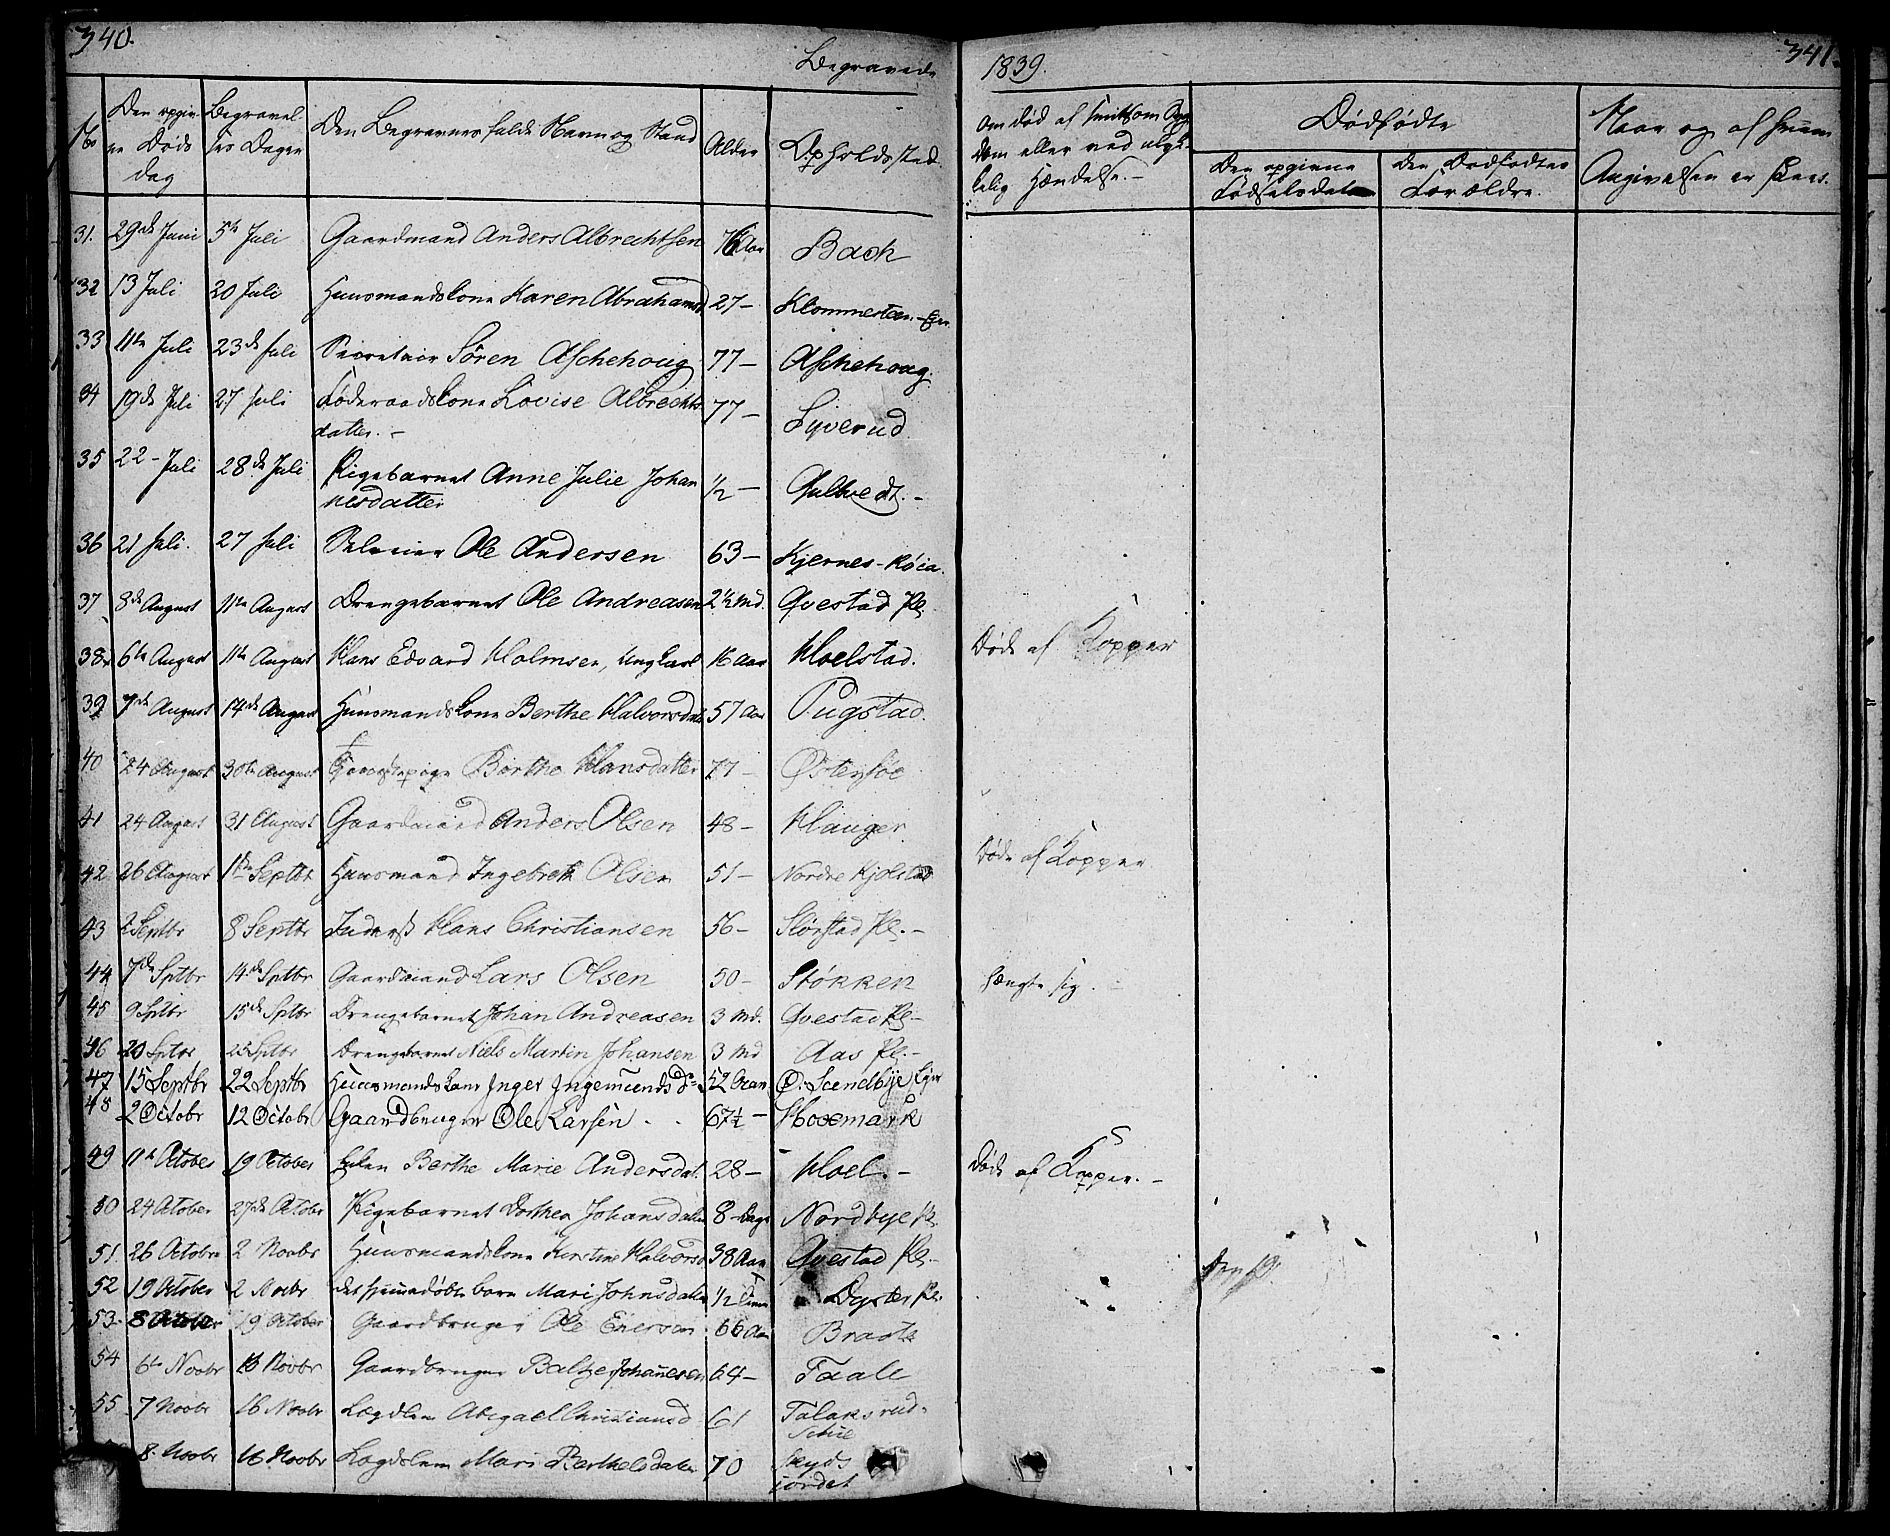 340.
Begravede
1839.
341.
No
Den opgivne Døds dag
Begravelses Dagen
Den Begravnes fulde Navn og Stand
Alder
Opholdssted
Om død af smitsom Sygdom eller ved ulykkelig Hændelse.-
Dødfødte
Den opgivne Fødselsdato
Den Dødfødtes Forældre.
Naar og af hvem Angivelsen er skeet.
31. 29de Juni 5te Juli Gaardmand Anders Albrechtsen 76 Aar Bach
32 13 Juli 20 Juli Huusmandskone Karen Abrahamsd 27- Klommesteen-
33 11te Juli 23de Juli Secretair Søren Aschehoug 77- Aschehoug.
34 19de Juli 27 Juli Føderaadskone Lovise Albrechts
datter.- 77- Lyverud
35 22- Juli 28de Juli Pigebarnet Anne Julie Johan
nesdatter ½- Gulbvedt.-
36 21 Juli. 27 Juli Ole Andersen 63- Kjernes-
37 8de August 11te August Drengebarnet Ole Andreasen 2½ Md. Qvestad Pl.
38. 6te August 11te August Hans Edvard Holmsen, Ungkarl 16 Aar Hoelstad. Døde af Kopper
39 7de August 14de August Huusmandskone Berthe Halvorsdatt 57 Aar Pugstad.
40 24 August 30te August Berthe Hansdatter 77- Østensøe
41 24 August 31 August Gaardmand Anders Olsen 48- Hauger
42 26 August 1ste Septbr Huusmand Ingebreth Olsen 51- Nordre Kjølstad Døde af Kopper
43 2 Septbr 8 Septbr Inderst Hans Christiansen 56- Slørstad Pl.-
44 7de Sptbr 14de Sptbr Gaardmand Lars Olsen 50- Støkken Hængte sig.
45 9 Sptbr 15de Sptbr Drengebarnet Johan Andreasen 3 Md. Qvestad Pl-
46 20 Sptbr 25 Sptbr Drengebarnet Niels Martin Johansen 3 Md Aas Pl.-
47 15 Septbr 22 Septbr Huusmandskone Inger Ingemundsdr 52 Aar Ø: Scendbye
48 2 Octobr 12 Octobr Gaardbruger Ole Larsen 67½- Hoxmark
49 11te October 19 October Berthe Marie Andersdat. 28- Hoel.- Døde af Kopper.-
50 24 October 27de Octobr Pigebarnet Dorthea Johansdatter 8 Dage Nordbye Pl.
51. 26 Octobr 2 Novbr Huusmandskone Kirstine Halvorsd 38 Aar Qvestad Pl.-
52 19 October 2 Novbr det hjemmedøbte barn Mari Johnsdatter ½ Time Dyster Pl.
53. 8 October 19 October Gaardbruger Ole Enersen 66 Aar Braate
54 6te Novbr 13 Novbr Gaardbruger Baltzer Johannesen 64- Faale
55 7 Novbr 16 Novbr Lægdslem Abigael Christiansd 61 Talaksrud-
8. Novbr 16 Novbr Lægdslem Mari Berthelsdatter 70 Skyds
jordet